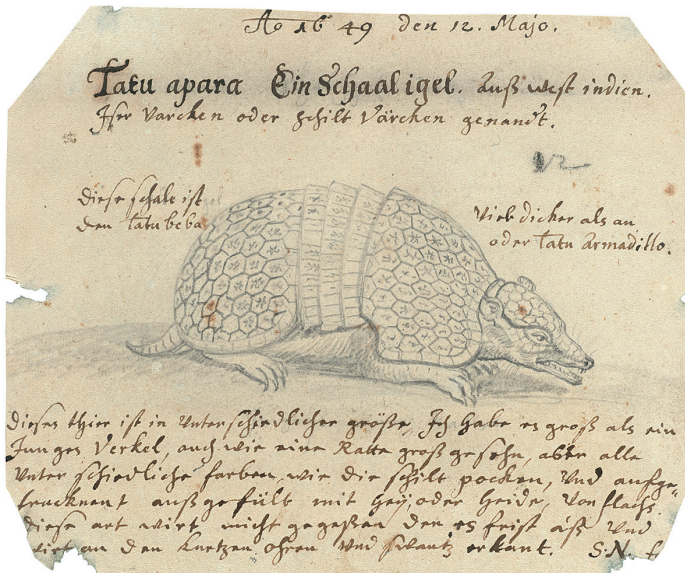 Ao 1649 den 12. Majo.
Tatu apara Ein Schaal igel. Auß west indien.
Jser Varcken oder schilt Värcken genandt.
Diese schale ist
den Tatu beba
Vieb dicker als an
oder Tatu Armadillo.
Dieses thier ist in Unterschiedlicher größe, Jch habe es groß als ein
Junges Verkel, auch wie eine Ratte groß gesehn, aber alle
Unter schiedliche farben, wie die schilt pocken, Und aufge-
trucknent außgefült mit Heÿ, oder Heide, Von flachs.
Diese art wirt nicht gegeßen den es frist aß Und
wirt an den kurtzen ohren Und swantz erkant. S:N. f